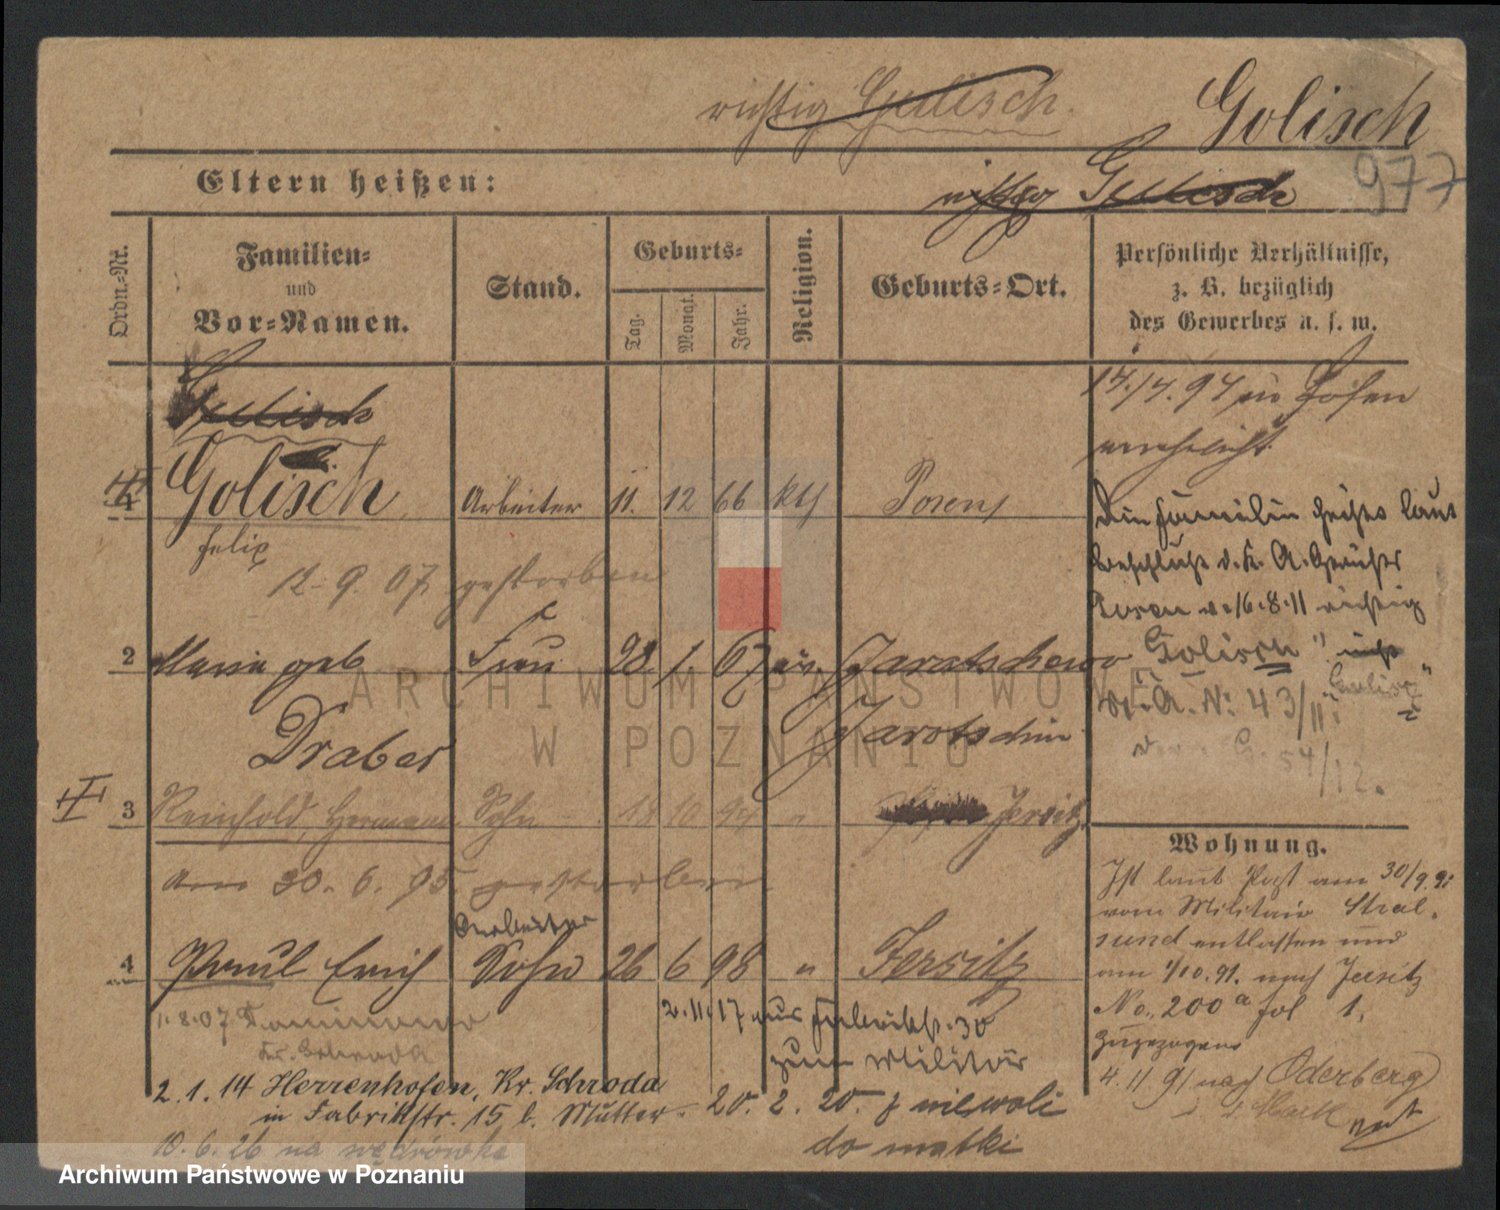 richtig Gulisch. Golisch
Eltern heißen: 977
Ordn.-Nr.
Familien-
und
Vor-Namen.
Stand.
Geburts-
Tag.
Monat.
Jahr.
Religion.
Geburts-Ort.
Persönliche Verhältnisse,
z. B. bezüglich
des Gewerbes u. s. w.
Gulisch
1 Golisch Arbeiter 11. 12 66 kth Posen
Felix
12. 9. 07. gestorben
2 Maria geb Frau 28 1. 67 Jaratschewo
Draber Jarotschin
3 Reinhold, Hermann Sohn 10 94 " Jersitz
am 30. 6. 95. gestorben
Arbeiter
4 Paul Erich Sohn 26 6 98 " Jersitz
1.8.07
2.11.17 aus Fabrikst. 30
zum Militär
2.1.14 Herrenhofen, Kr. Schroda
in Fabrikstr. 15 b. Mutter.
20. 2. 20. z niewoli
do matki
10.6.26 na wędrówkę
14./4. 94 in Posen
verehelicht.
Die Familie heißt laut
Beschluß d. K. A. Gerichts
Posen v. 16.8.11 richtig
"Golisch" nicht
"Gulisch"
A. N: 43/11.
54/12.
Wohnung.
Ist laut Paß am 30/9.91
vom Militair Stral-
sund entlassen und
am 1/10.91. nach Jersitz
No. 200a fol 1,
zugezogen
4.11 91 nach Oderberg
i. d. Mark
ARCHIWUM PAŃSTWOWE
W POZNANIU
Archiwum Państwowe w Poznaniu